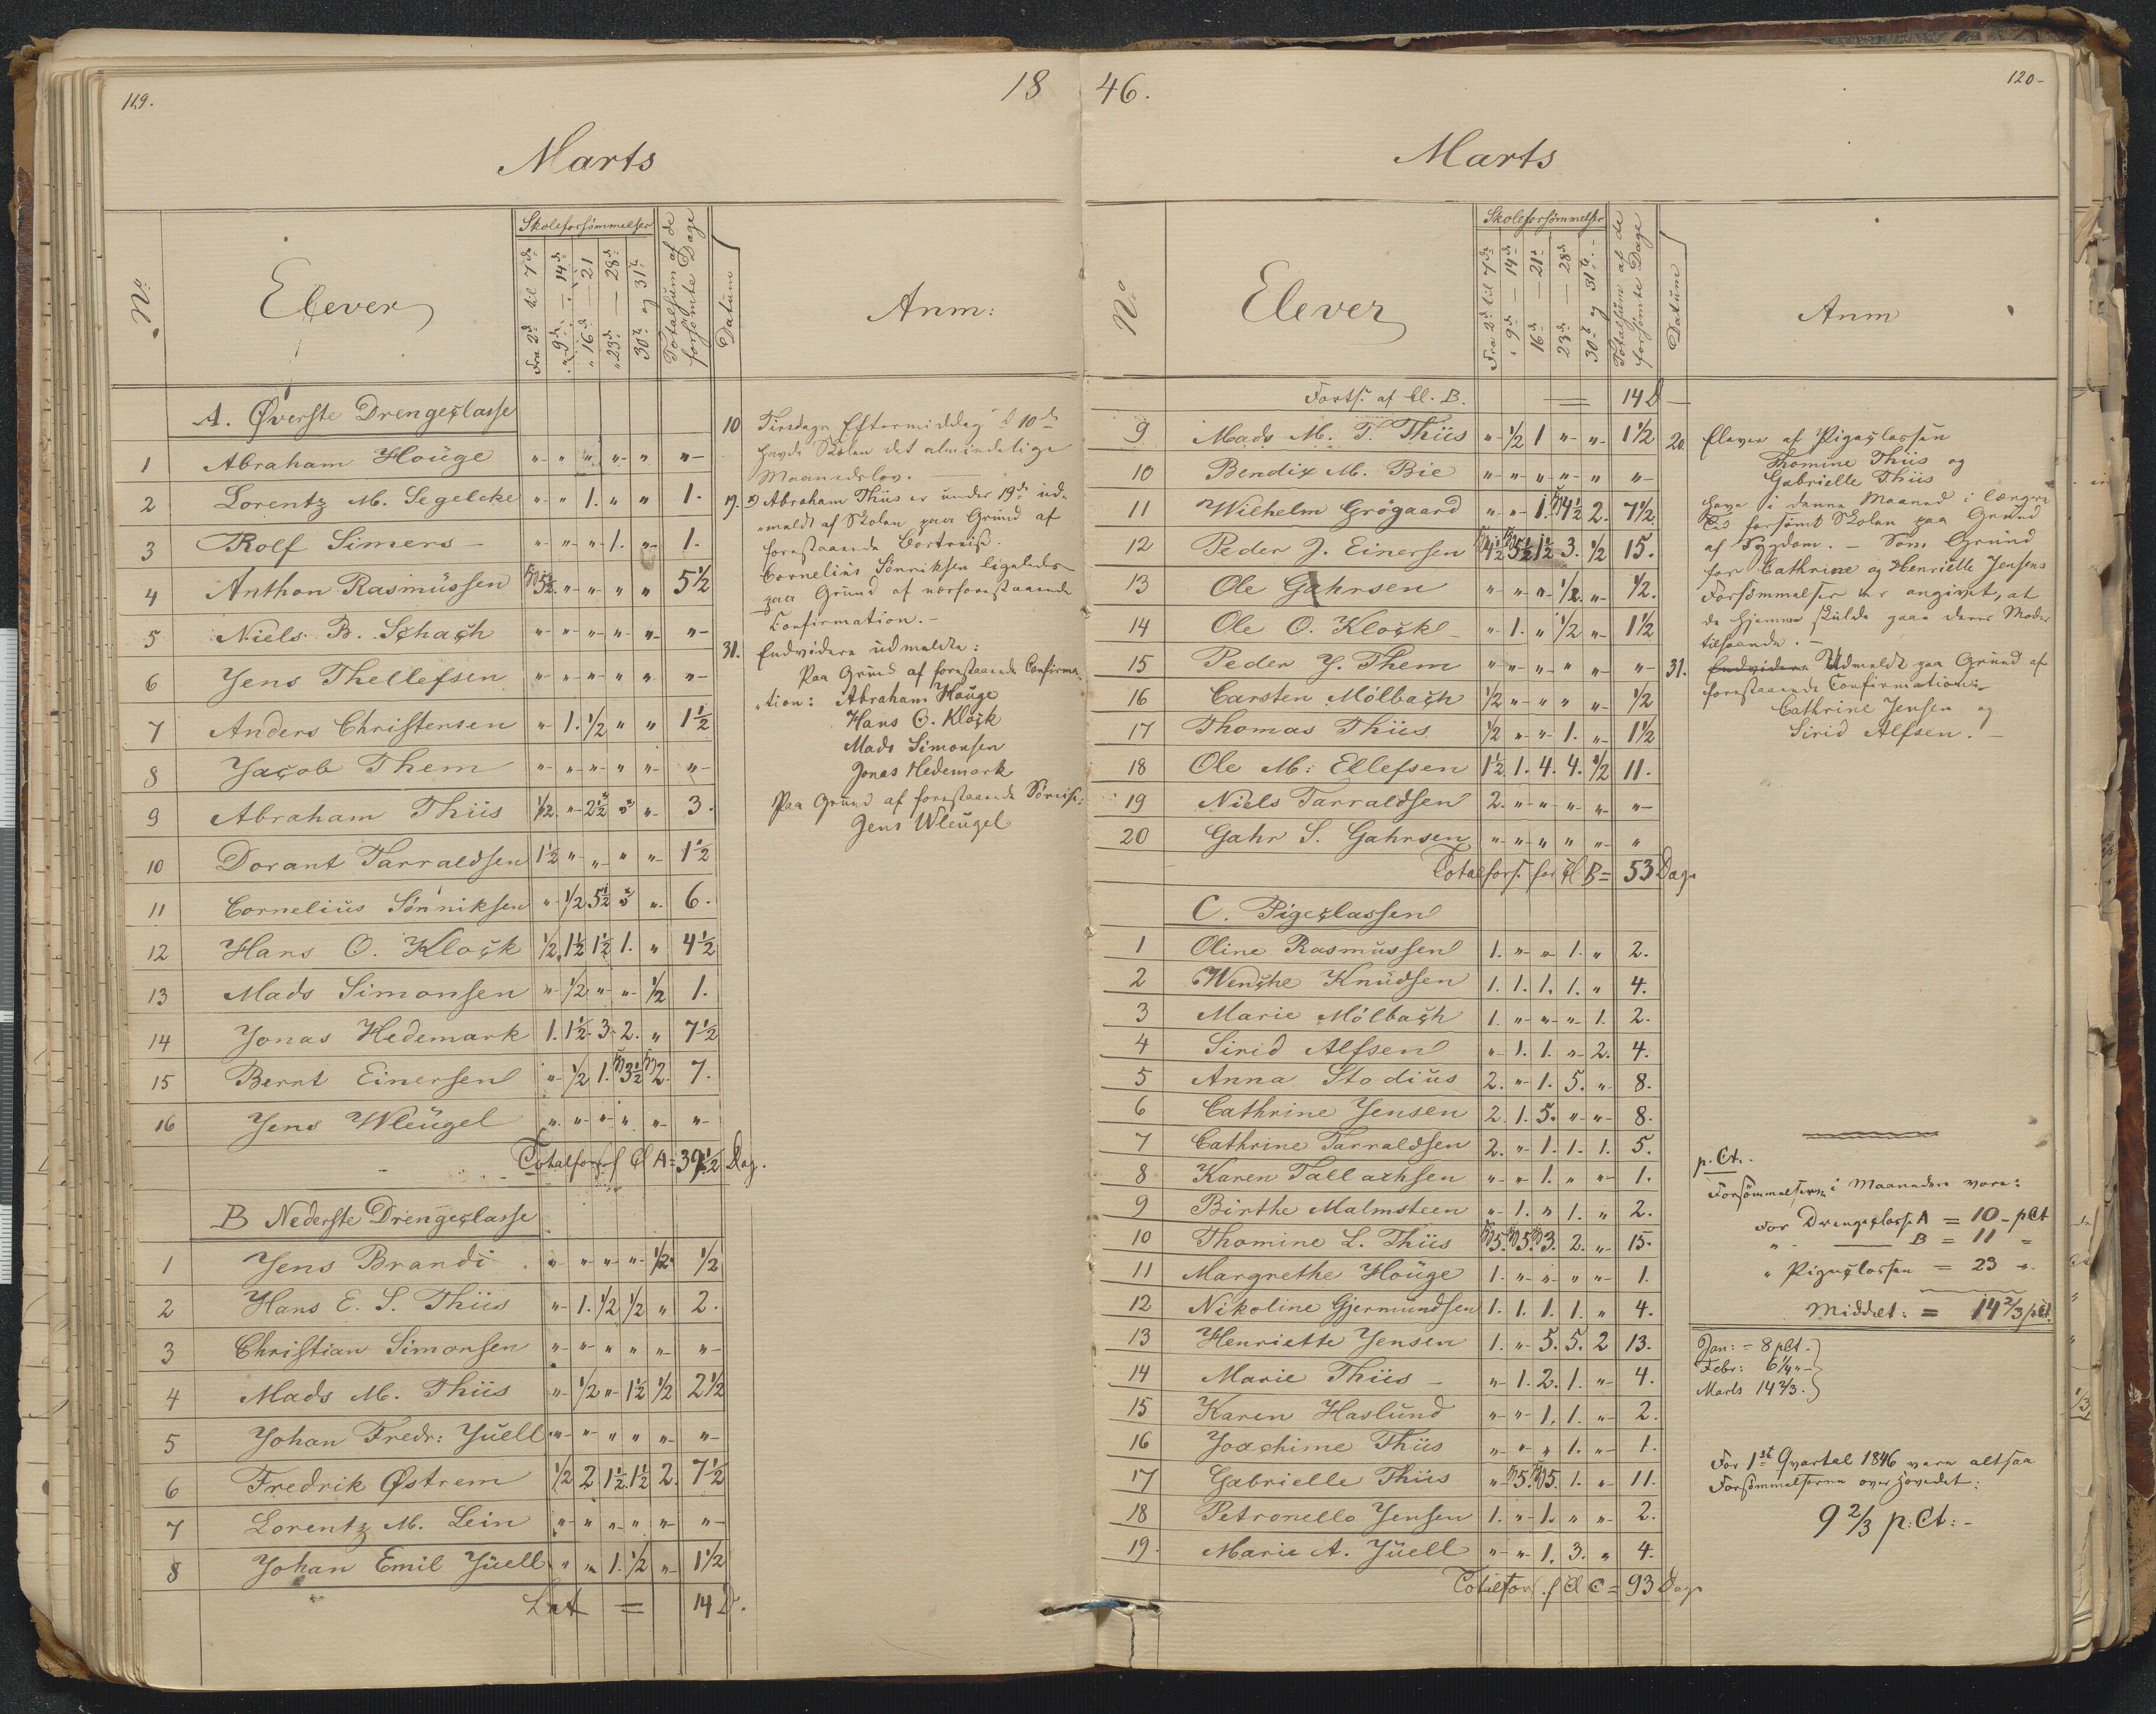 119.
18
Marts
No
Elever
Skoleforsömmelser
Fra 2d til 7de
" 9d — 14de
" 16d — 21
" 23d — 28d
30t og 31te
Totalsum af de forsömte Dage
Datum
Anm:
A. Øverste Drengeclasse
1 Abraham Houge " " " " " "
2 Lorentz M. Segelcke " " 1. " " 1.
3 Rolf Simers " " " 1. " 1.
4 Anthon Rasmussen 5½. " " " " 5½
5 Niels B. Schach " " " " " "
6 Jens Thellefsen " " " " " "
7 Anders Christensen " 1. ½ " " 1½
8 Jacob Them " " " " " "
9 Abraham Thiis ½. " 2½ " 3.
10 Dorant Tarraldsen 1½ " " " " 1½
11 Cornelius Sönniksen " ½ 5½ " 6.
12 Hans O. Klock ½. 1½ 1½ 1. " 4½
13 Mads Simonsen " ½ " " ½ 1.
14 Jonas Hedemark 1. 1½. 3. 2. " 7½
15 Bernt Einersen " ½ 1. 3½ 2. 7.
16 Jens Wleugel " " " " " "
Totalfors. f Cl A = 39½ Dag.
B Nederste Drengeclasse
1 Jens Brandi " " " " ½. ½
2 Hans E. S. Thiis " 1. ½ ½ " 2.
3 Christian Simonsen " " " " " "
4 Mads M. Thiis " ½ " 1½ ½ 2½
5 Johan Fredr: Juell " " " " " "
6 Fredrik Østrem ½ 2 1½. 1½ 2. 7½
7 Lorentz M. Lein " " " " " "
8 Johan Emil Juell " " 1. ½ " 1½
Lat = 14 D.
10 Tirsdags Eftermiddag d 10de
havde Skolen det almindelige
Maanedslov.
19. Abraham Thiis er under 19de ud-
meldt af Skolen paa Grund af
forestaaende Bortreise.
Cornelius Sönniksen ligeledes
paa Grund af nærforestaaende
Confirmation.
31. Endvidere udmeldte:
Paa Grund af forestaaende Confirma-
tion: Abraham Houge
Hans O. Klock
Mads Simonsen
Jonas Hedemark
Paa Grund af forestaaende Söreise:
Jens Wleugel
46.
120-
Marts
No
Elever
Skoleforsömmelser
Fra 2d til 7de
" 9d — 14de
16d — 21d
23d — 28d
30t og 31te
Totalsum af de forsömte Dage
Datum
Anm
Forts. af Cl. B. = 14 D
9 Mads M. T. Thiis " ½ 1 " " 1½
10 Bendix M. Bie " " " " " "
11 Wilhelm Grögaard " " 1. 4½ 2. 7½.
12 Peder J. Einersen 4½ 5½ 1½ 3. ½ 15.
13 Ole Gahrsen " " " ½. " ½.
14 Ole O. Klock " 1. " ½ " 1½
15 Peder J. Them " " " " " "
16 Carsten Mölbach ½ " " " " ½
17 Thomas Thiis ½ " " 1. " 1½
18 Ole M: Ellefsen 1½. 1. 4. 4. ½ 11.
19 Niels Tarraldsen 2. " " " " "
20 Gahr S. Gahrsen " " " " " "
Totalfors. for Cl B = 53 Dage
C. Pigeclassen
1 Oline Rasmussen 1. " " 1. " 2.
2 Wenche Knudsen 1. 1. 1. 1. " 4.
3 Marie Mölbach 1. " " " 1. 2.
4 Sirid Alfsen " 1. 1. " 2. 4.
5 Anna Stodius 2. " 1. 5. " 8.
6 Cathrine Jensen 2. 1. 5. " " 8.
7 Cathrine Tarraldsen 2. " 1. 1. 1. 5.
8 Karen Tallachsen " " 1. " " 1.
9 Birthe Malmsteen " 1. " 1. " 2.
10 Thomine L. Thiis 5. 5. 3. 2. " 15.
11 Margrethe Houge 1. " " " " 1.
12 Nikoline Gjermundsen 1. 1. 1. 1. " 4.
13 Henriette Jensen 1. " 5. 5. 2 13.
14 Marie Thiis " 1. 2. 1. " 4.
15 Karen Haslund " " 1. 1. " 2.
16 Joachime Thiis " " " 1. " 1.
17 Gabrielle Thiis " 5. 5. 1. " 11.
18 Petronelle Jensen 1. " 1. " " 2.
19. Marie A. Juell " " 1. 3. " 4.
Totalfor. f Cl C = 93 Dage
20. Elever af Pigeclassen
Thomine Thiis og
Gabrielle Thiis
have i denne Maaned i længere
Tid forsömt Skolen paa Grund
af Sygdom. – Som Grund
for Cathrine og Henriette Jensens
Forsömmelser er angivet, at
de hjemme skulde gaae deres Moder
tilhaande.
31. Endvidere Udmeldt paa Grund af
forestaaende Confirmation:
Cathrine Jensen og
Sirid Alfsen.
p. Ct.
Forsömmelserne i Maaneden vare:
For Drengeclasse A = 10 – pCt
" — B = 11 "
" Pigeclassen = 23 "
Middel: = 14⅔ pCt.
Jan: = 8 pCt.
Febr: 6¼ "
Marts 14⅔.
For 1st Qvartal 1846 vare altsaa
Forsömmelserne overhovedet:
9⅔ p:Ct: